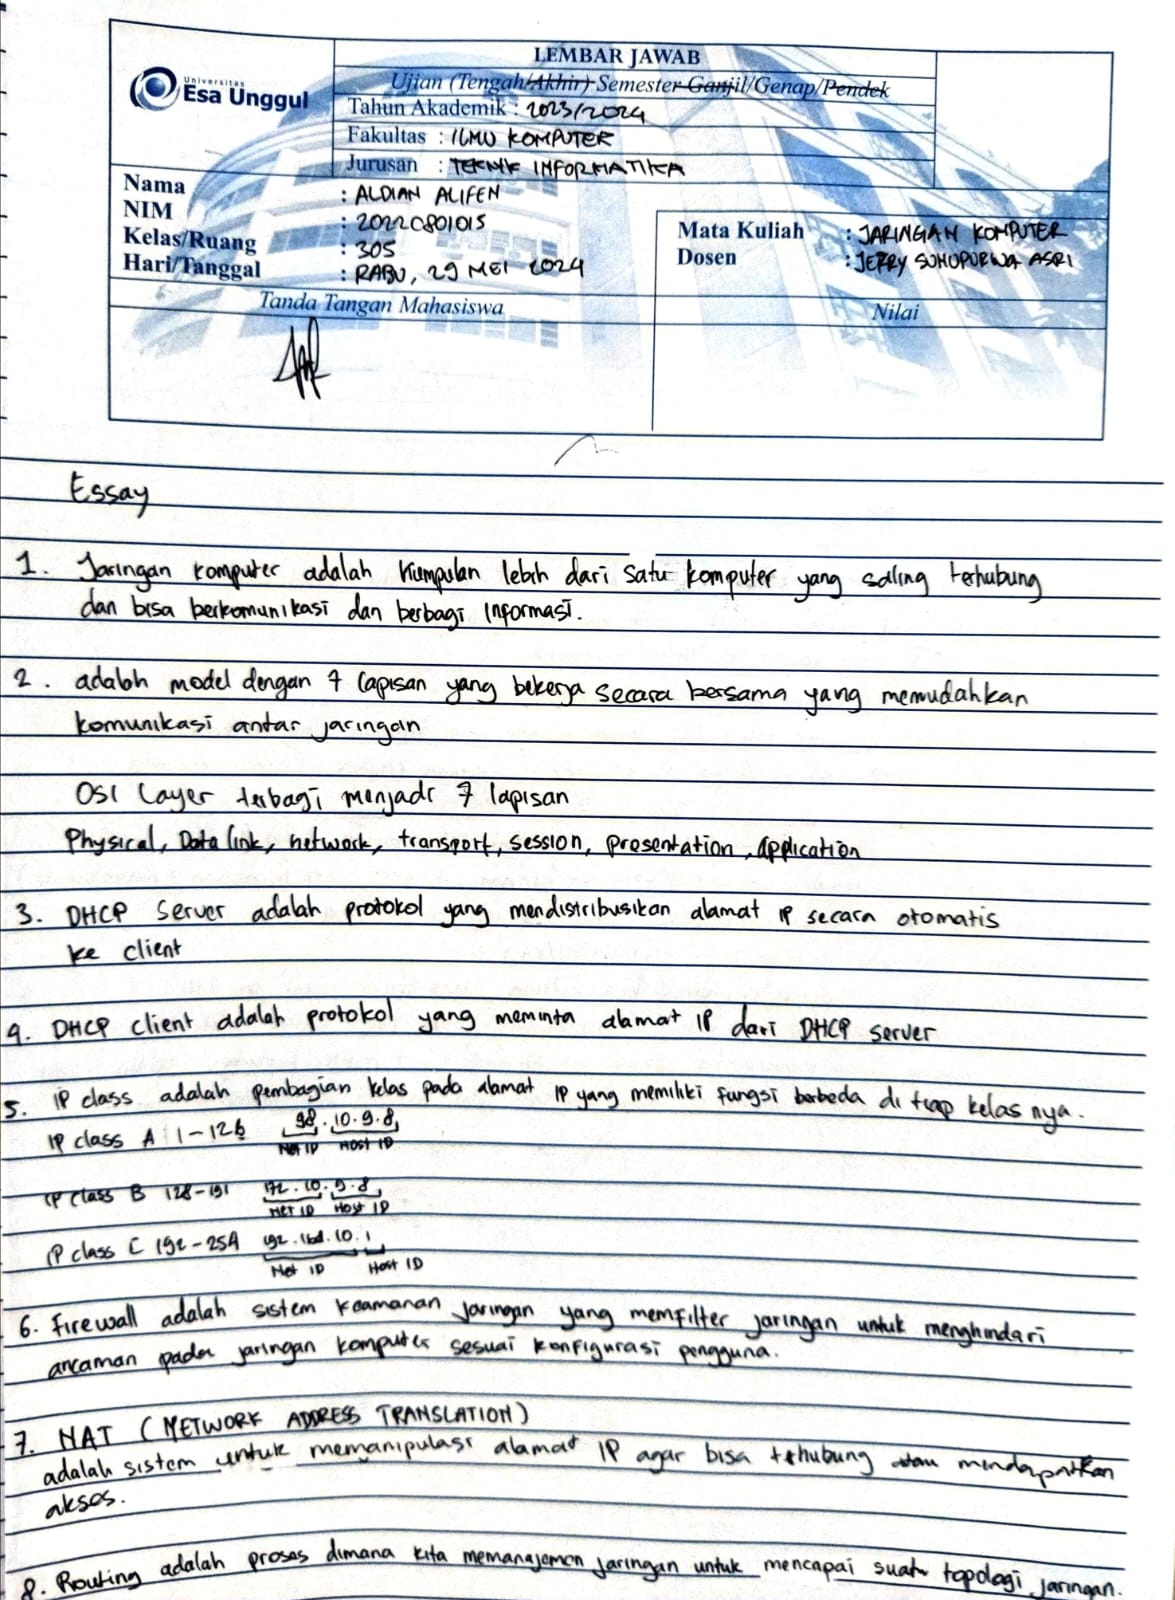 LEMBAR JAWAB
Universitas
Esa Unggul
Ujian (Tengah/Akhir) Semester Ganjil/Genap/Pendek
Tahun Akademik : 2023/2024
Fakultas : ILMU KOMPUTER
Jurusan : TEKNIK INFORMATIKA
Nama : ALDIAN ALIFEN
NIM : 20220801015
Kelas/Ruang : 305
Hari/Tanggal : RABU, 29 MEI 2024
Mata Kuliah : JARINGAN KOMPUTER
Dosen : JEFRY SUNUPURWA ASRI
Tanda Tangan Mahasiswa
Nilai
Essay
1. Jaringan komputer adalah kumpulan lebih dari satu komputer yang saling terhubung
dan bisa berkomunikasi dan berbagi informasi.
2. adalah model dengan 7 lapisan yang bekerja secara bersama yang memudahkan
komunikasi antar jaringan
OSI Layer terbagi menjadi 7 lapisan
Physical, Data link, network, transport, session, presentation, application
3. DHCP Server adalah protokol yang mendistribusikan alamat IP secara otomatis
ke client
4. DHCP client adalah protokol yang meminta alamat IP dari DHCP server
5. IP class adalah pembagian kelas pada alamat IP yang memiliki fungsi berbeda di tiap kelas nya.
IP class A 1-126 98.10.9.8
Net ID Host ID
IP class B 128-191 172.10.9.8
NET ID Host ID
IP class C 192-254 192.168.10.1
Net ID Host ID
6. Firewall adalah sistem keamanan jaringan yang memfilter jaringan untuk menghindari
ancaman pada jaringan komputer sesuai konfigurasi pengguna.
7. NAT (NETWORK ADDRESS TRANSLATION)
adalah sistem untuk memanipulasi alamat IP agar bisa terhubung atau mendapatkan
akses.
8. Routing adalah proses dimana kita memanajemen jaringan untuk mencapai suatu topologi jaringan.